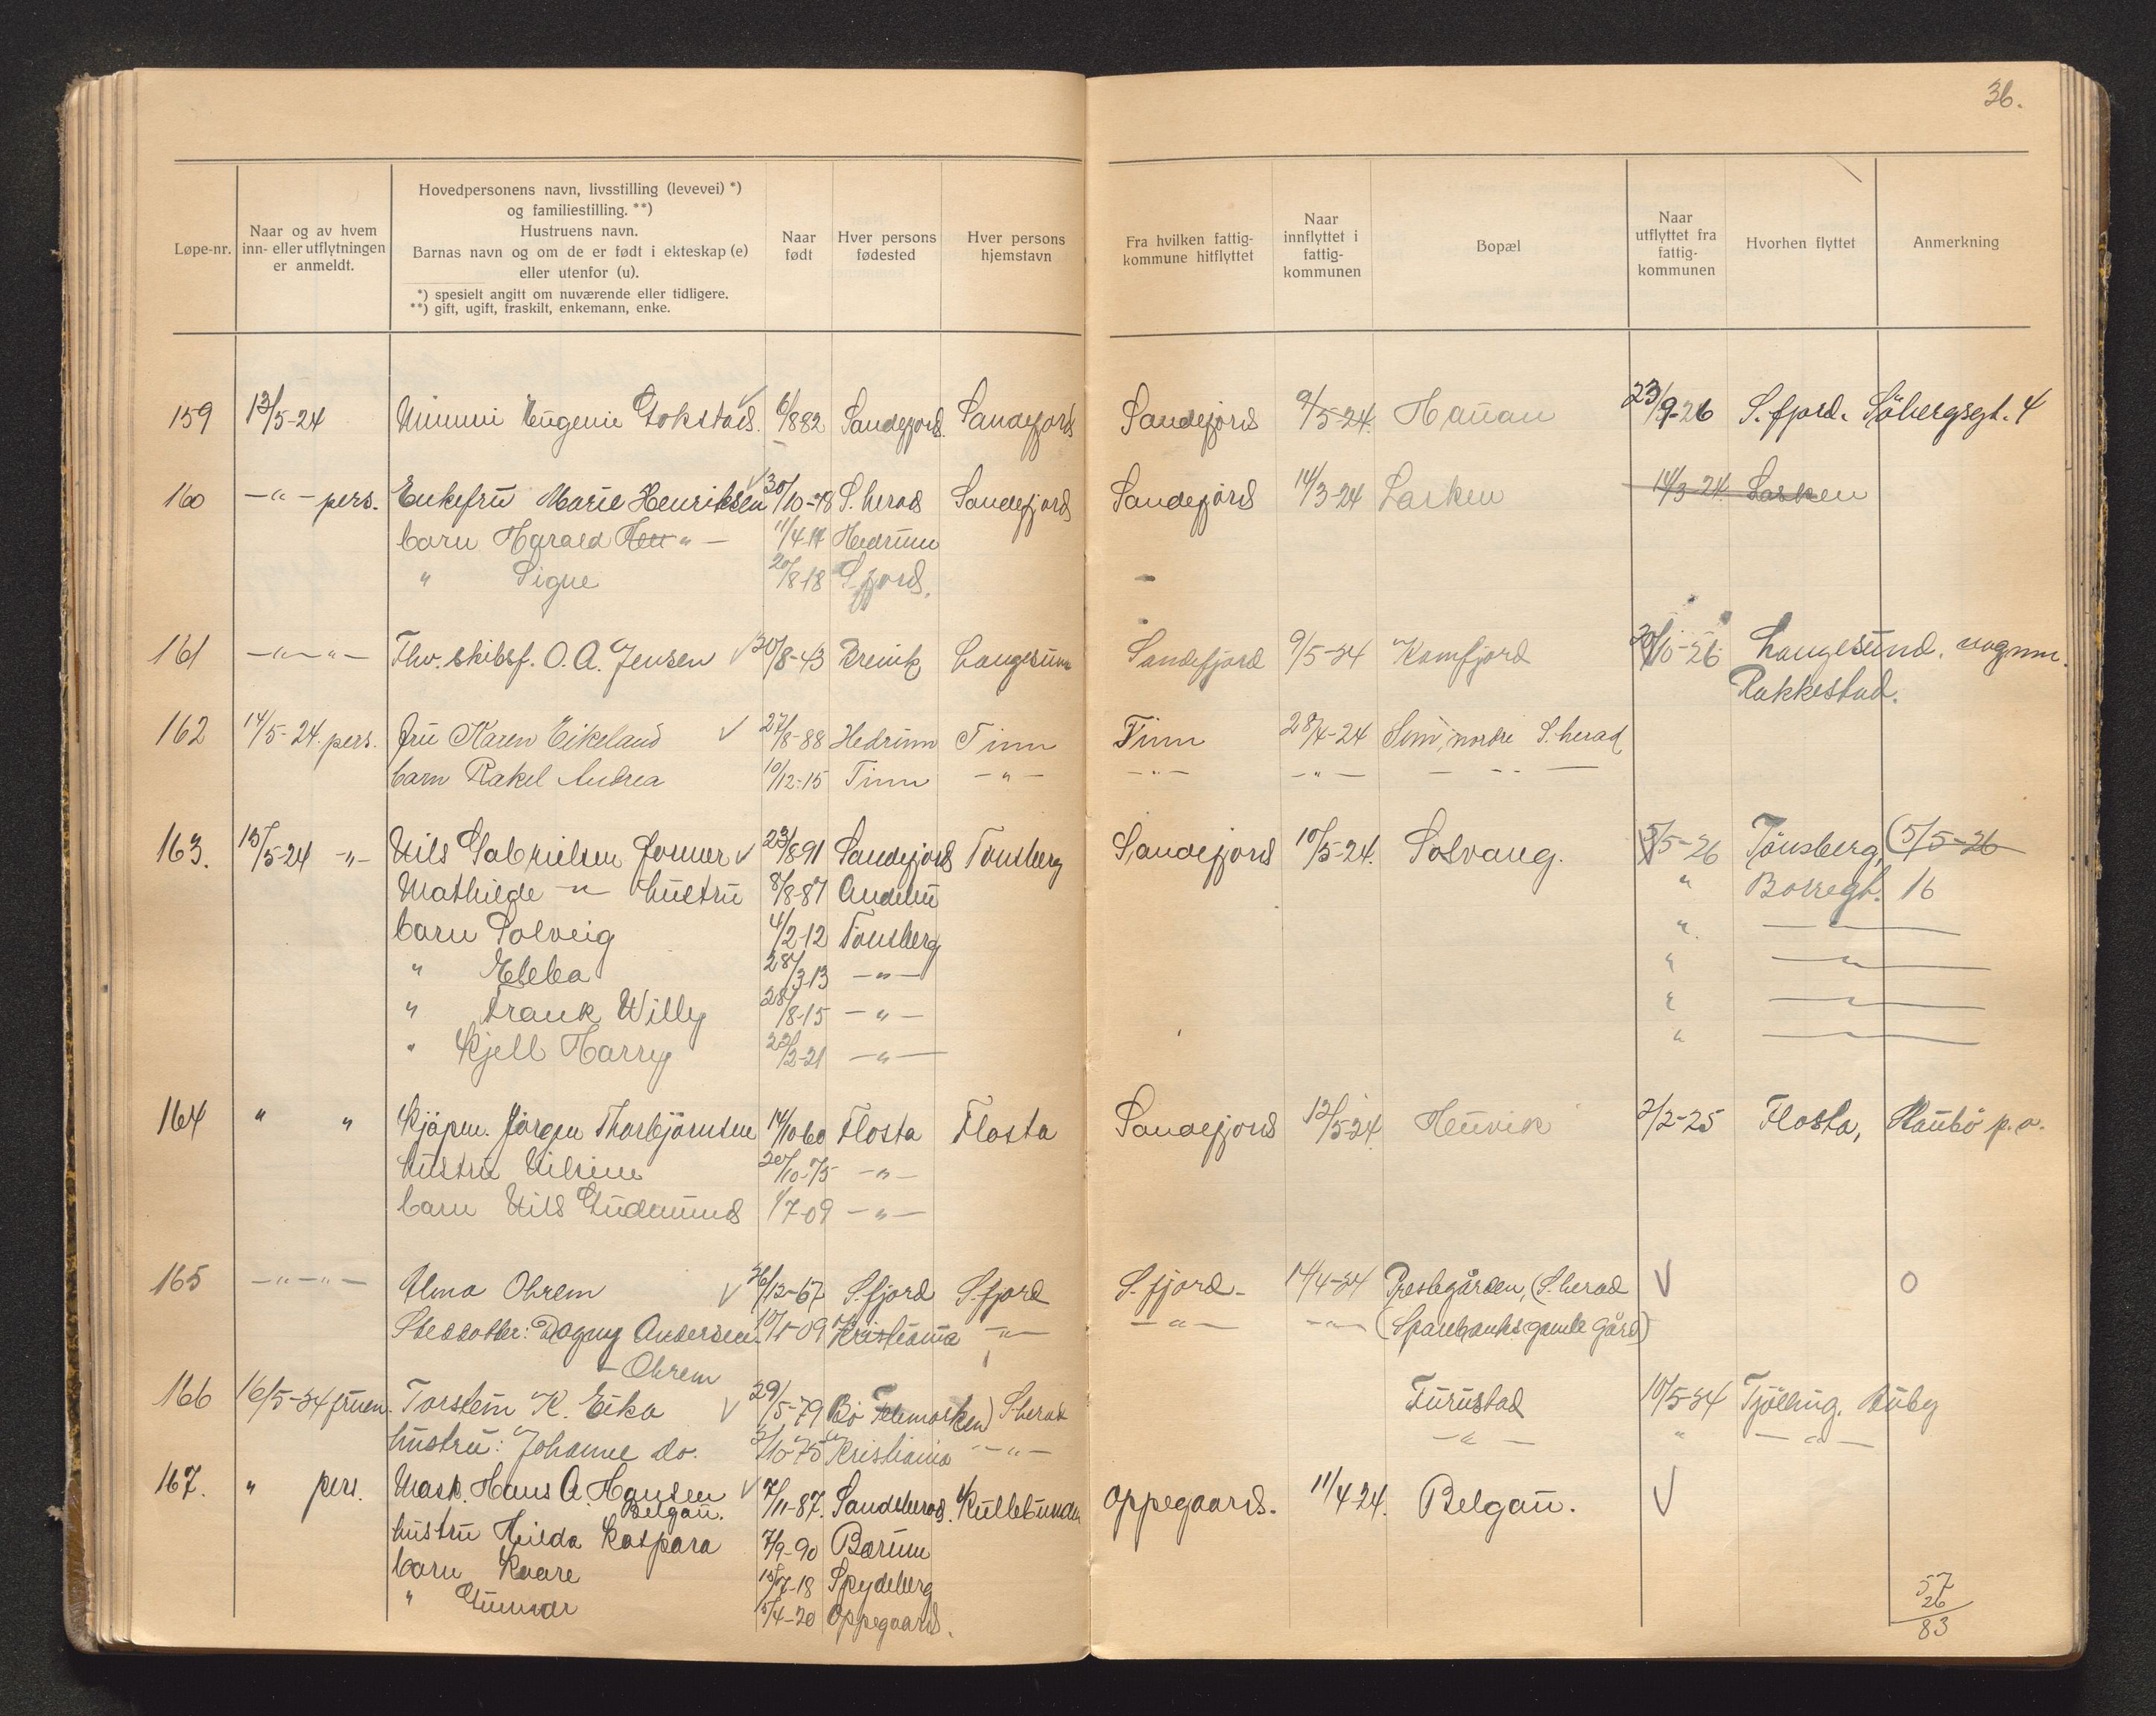 36.
Løpe-nr.
Naar og av hvem
inn- eller utflytningen
er anmeldt.
Hovedpersonens navn, livsstilling (levevei) *)
og familiestilling. **)
Hustruens navn.
Barnas navn og om de er født i ekteskap (e)
eller utenfor (u).
*) spesielt angitt om nuværende eller tidligere.
**) gift, ugift, fraskilt, enkemann, enke.
Naar
født
Hver persons
fødested
Hver persons
hjemstavn
Fra hvilken fattig-
kommune hitflyttet
Naar
innflyttet i
fattig-
kommunen
Bopæl
Naar
utflyttet fra
fattig-
kommunen
Hvorhen flyttet
Anmerkning
159 13/5-24 Mimmi Eugenie Gokstad. ✓ 6/882 Sandefjord. Sandefjord Sandefjord 9/5-24. Hauan 23/9-26 S.fjord. Söbergsgt. 4
160 -"- pers. Enkefru Marie Henriksen ✓ 30/10-78 S. herad Sandefjord Sandefjord 14/3-24 Lasken 14/3-24. Lasken
barn Harald Hen " - 11/4.14 Hedrum
" Signe 20/8-18 S.fjord.
161 -"- "- Fhv. skibsf. O. A. Jensen ✓ 30/8-43 Brevik Langesund Sandefjord 9/5-24 Kamfjord 20/10-26 Langesund.
Rakkestad.
162 14/5-24. pers. Fru Karen Eikeland ✓ 27/8-88 Hedrum Tinn Tinn 28/4-24 Sem, nordre S. herad
barn Rakel Andrea 10/12-15 Tinn -"- -"- -"- - -- -
163. 15/5-24 -"- Nils Gabrielsen Former ✓ 23/891 Sandefjord Tønsberg Sandefjord 10/5-24. Solvang. 5/5-26 Tönsberg, (5/5-26
Mathilde -"- hustru 8/8-87 Andebu " Borregt. 16
barn Solveig 4/2-12 Tønsberg " -"-
" Ebba 28/3-13 -"- " -"-
" Frank Willy 28/8-15 -"- " -"-
" Kjell Harry 22/2-21 -"- " -"-
164 " " Kjøpm. Jørgen Thorbjörnsen 14/1060 Flosta Flosta Sandefjord 12/5-24 Heuvik 2/2-25 Flosta, Staubö p.o.
hustru Nilsine 20/10-75 -"-
barn Nils Gudmund 1/7-09 -"-
165 -"-"- Alma Ohrem ✓ 26/12-67 S.fjord S.fjord S.fjord- 14/4-24 Prestegården, (S. herad ✓ o
Steddatter: Dagny Andersen 10/1-09 Kristiania -"- -"- -"- (Sparebanks gamle gård)
- Ohrem
166 16/5-24 fruen. Torstein K. Eika ✓ 29/5-79 Bö Telemarken) S.herad Furustad 10/5-24 Tjölling. Auby
hustru: Johanne do. 2/10-75 Kristiania -"- -"- " -"-
167. " pers. Mask. Hans A. Hansen ✓ 7/11-87. Sandeherad. Kullebunden Oppegaard. 11/4-24. Belgau. ✓
Belgau.
hustru Hilda Kaspara 7/9-90 Bærum
barn Kaare 15/7-18 Spydeberg
" Gunnar 5/4-20 Oppegaard.
57
26
83